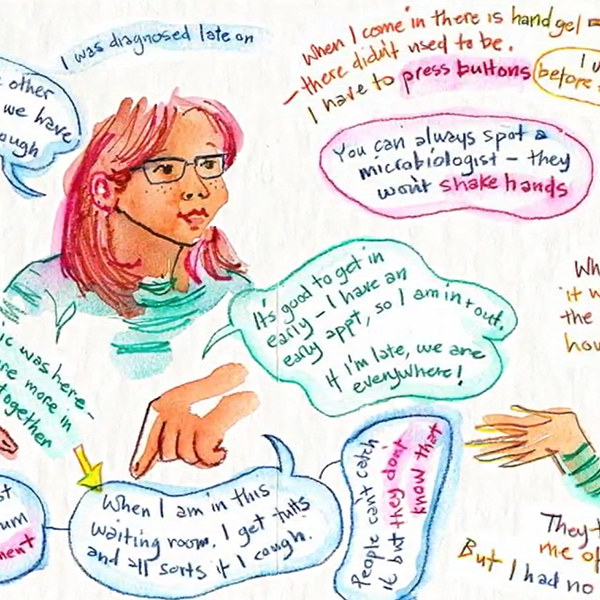 I was diagnosed late on
When I come in there is hand gel
– there didn't used to be.
I have to press buttons
before
other
we have
You can always spot a
microbiologist – they
won't shake hands
It's good to get in
early – I have an
early appt, so I am in + out.
If I'm late, we are
everywhere!
the
was here –
more in
together
When I am in this
waiting room, I get tuts
and all sorts if I cough.
People can't catch
it but they don't
know that
me
But I had no